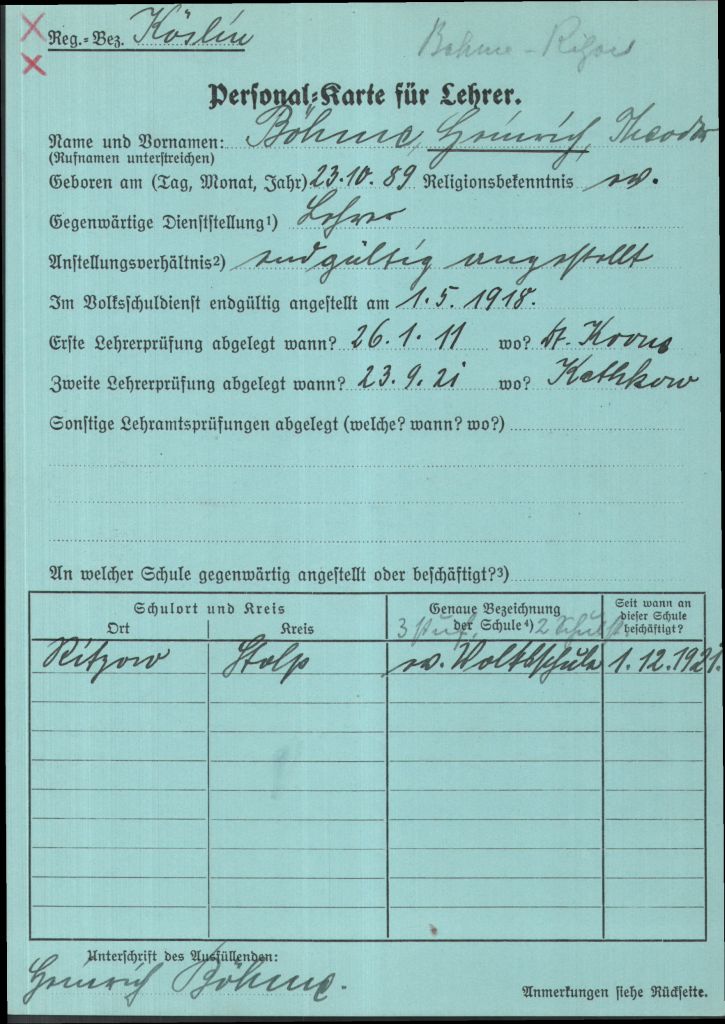 Reg.-Bez. Köslin
Personal-Karte für Lehrer.
Name und Vornamen: Böhme, Heinrich, Theodor
(Rufnamen unterstreichen)
Geboren am (Tag, Monat, Jahr) 23.10.89 Religionsbekenntnis ev.
Gegenwärtige Dienststellung1) Lehrer
Anstellungsverhältnis2) endgültig angestellt
Im Volksschuldienst endgültig angestellt am 1.5.1918.
Erste Lehrerprüfung abgelegt wann? 26.1.11 wo? Dt. Krone
Zweite Lehrerprüfung abgelegt wann? 23.9.21 wo?
Sonstige Lehramtsprüfungen abgelegt (welche? wann? wo?)
An welcher Schule gegenwärtig angestellt oder beschäftigt?3)
Schulort und Kreis
Ort Kreis
Genaue Bezeichnung
der Schule4)
Seit wann an
dieser Schule
beschäftigt?
Ritzow Stolp ev. Volksschule 1.12.1921.
Unterschrift des Ausfüllenden:
Heinrich Böhme.
Anmerkungen siehe Rückseite.